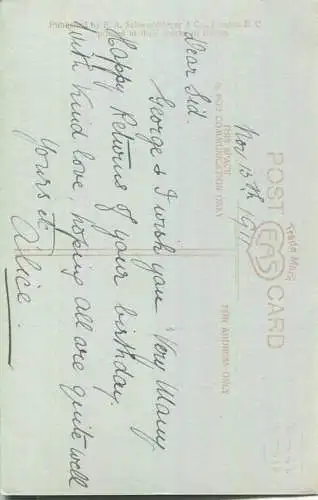 POST CARD
Trade Mark
EAS
THIS SPACE
COMMUNICATION ONLY
THE ADDRESS ONLY
Nov. 13th 1911
Dear Sid.
George & I wish you Very Many
Happy Returns of your birthday.
With kind love, hoping all are quite well
Yours
Alice.
Published by E. A. Schwerdtfeger & Co., London E. C.
Printed at their works